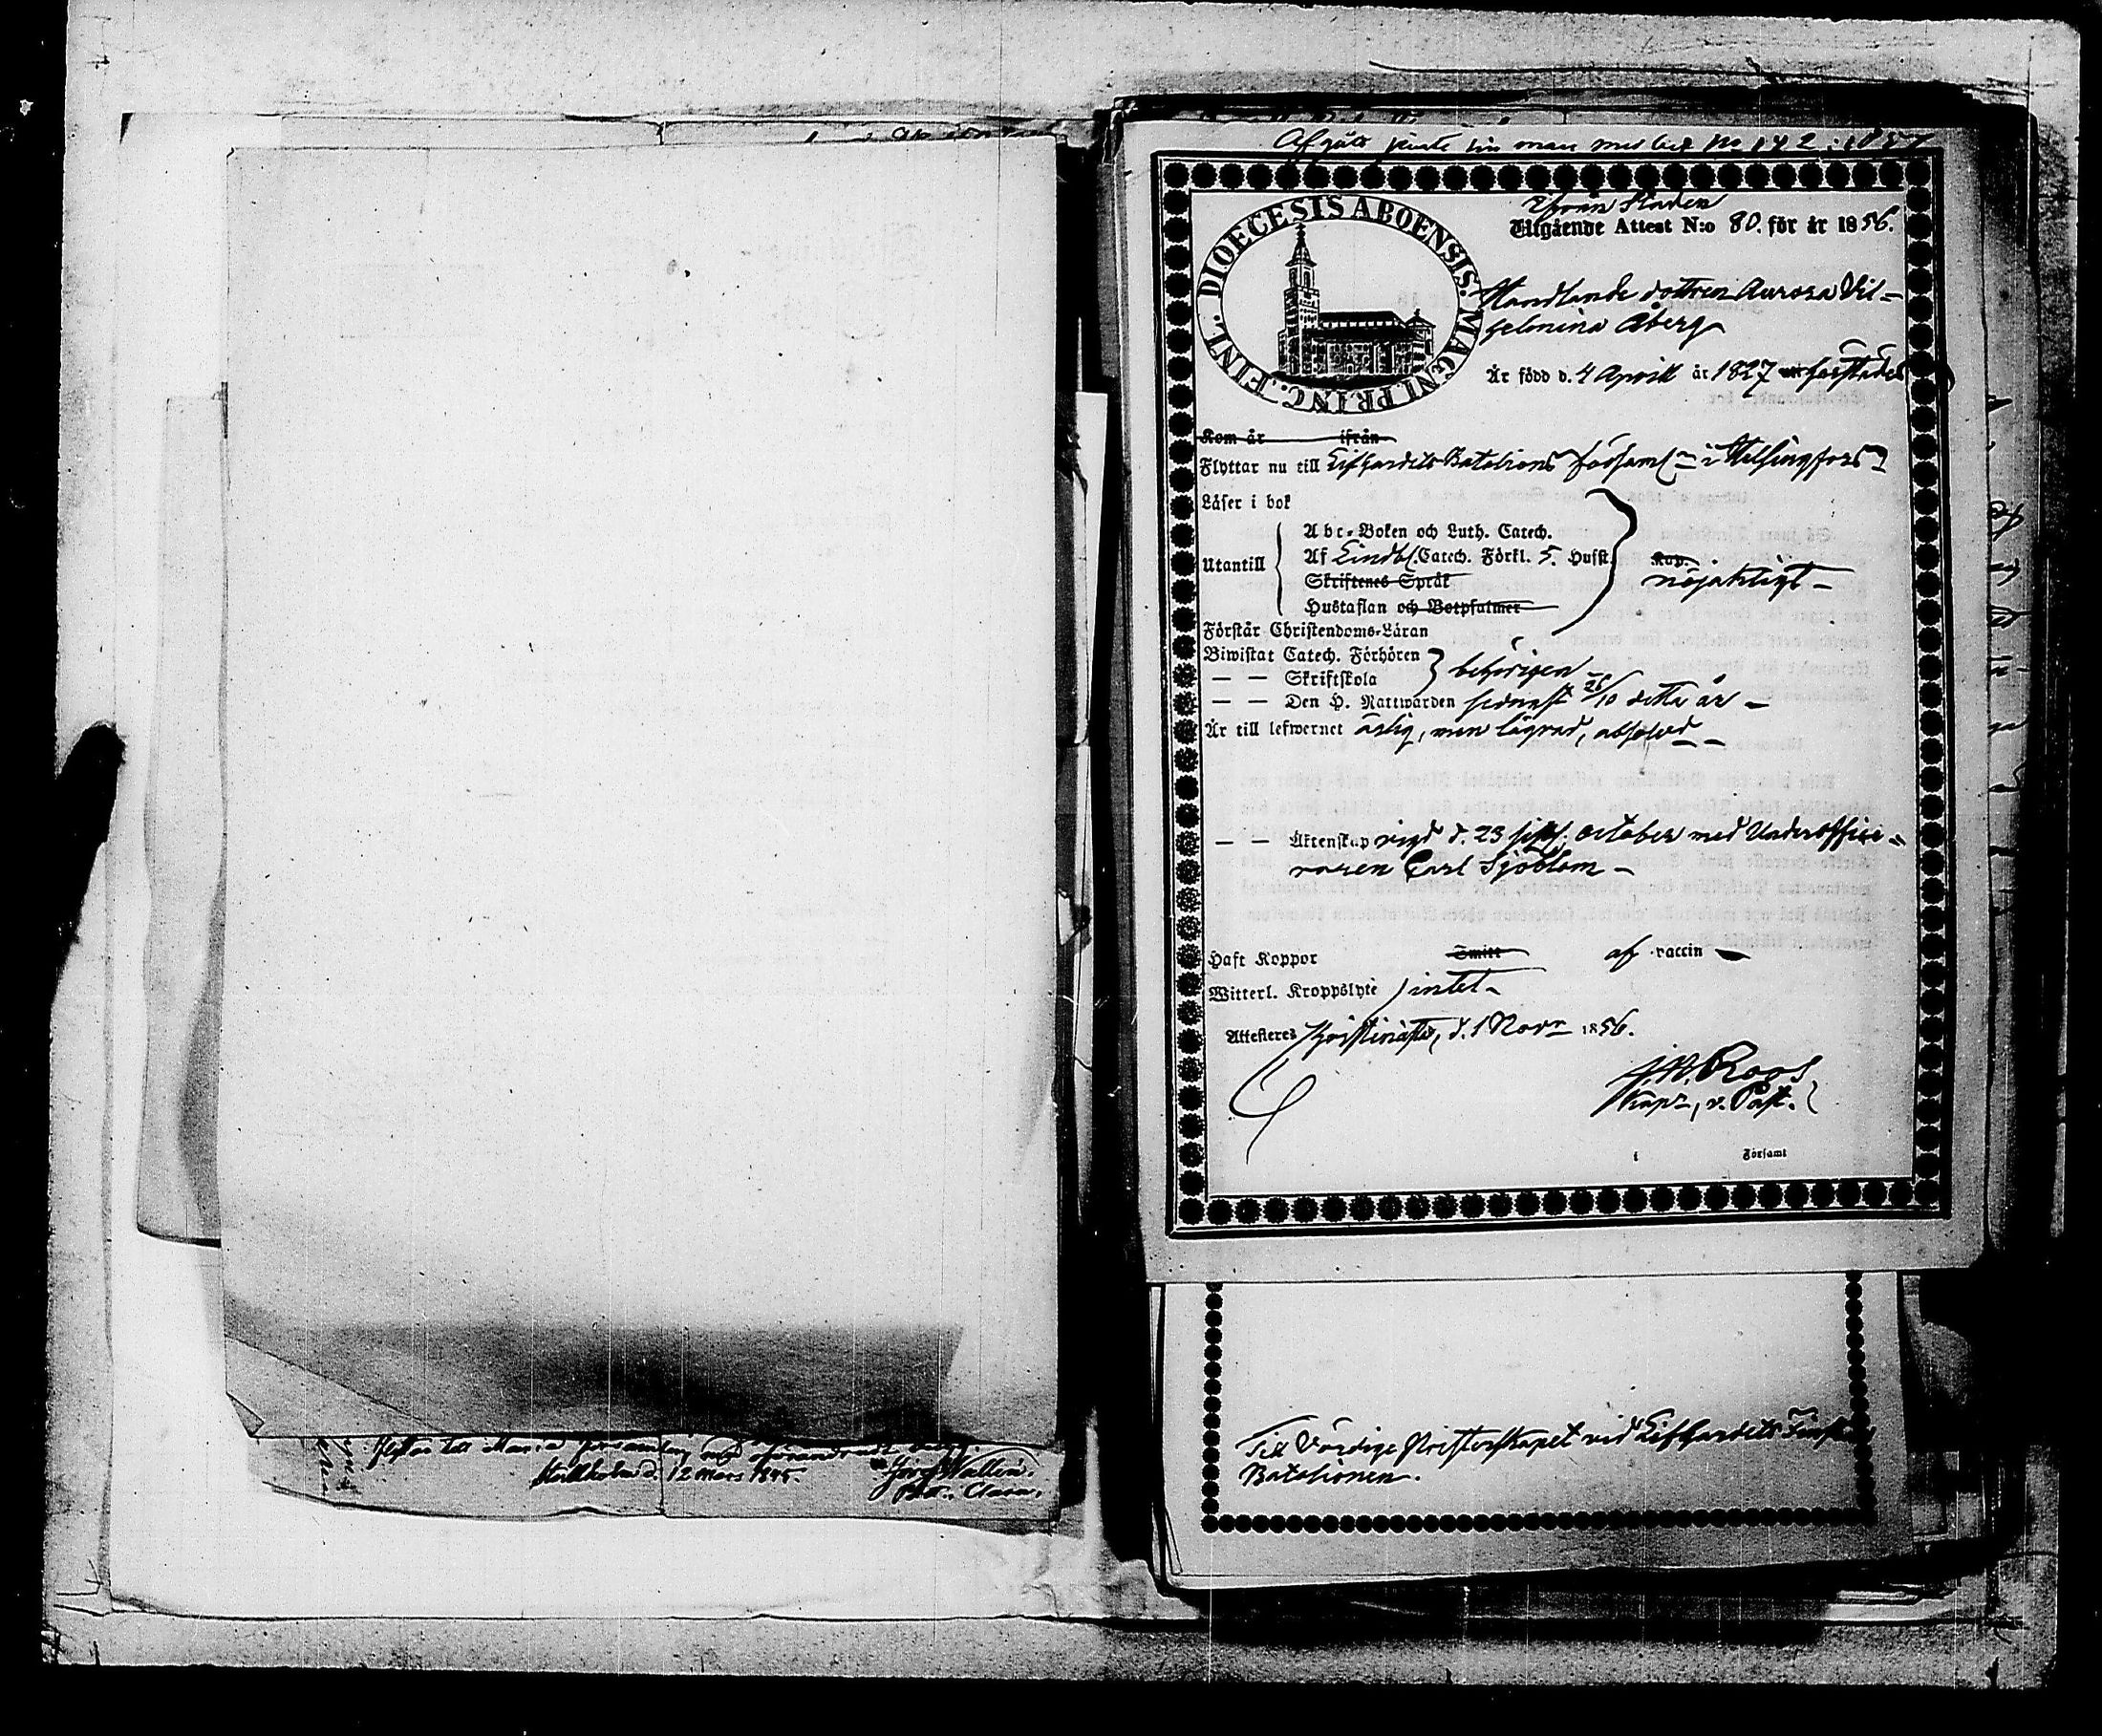 Flyttar till Maria församling med oförändradt
Stockholm d. 12 Mars 1845. Josef Wallin.
Past. Clara.
Afgått jemte sin man med bet No 142 : 1857
DIOECESIS ABOENSIS. MAGNI. PRINC. FINL.
Ifrån Staden
Utgående Attest N:o 80. för år 1856.
Handlande dottren Aurora Vil-
helmina Åberg
Är född d. 4 April år 1827
Kom år ifrån
Flyttar nu till Lifgardets Batalions församl i Helsingfors
Läser i bok
Abc-Boken och Luth. Catech.
Utantill Af Lindbl. Catech. Förkl. 5. Hufst. Kap.
Skriftenes Språk nöjaktigt -
Hustaflan och Botpsalmer
Förstår Christendoms-Läran
Biwistat Catech. Förhören
— — Skriftskola behörigen -
— — Den H. Nattwarden sednast 26/10 detta år -
Är till lefwernet ärlig, men lägrad, absolverad -
— — Äktenskap vigd d. 23 sistl. October med Underoffice-
raren Carl Sjöblom -
Haft Koppor Smitt af vaccin
Witterl. Kroppslyte intet -
Attesteras Christinæstad, d. 1 Novr 1856.
J. W. Roos
Kapn, v. Past.
i Församl
Till Vördige Presterskapet vid Lifgardets Finska
Batalionen.